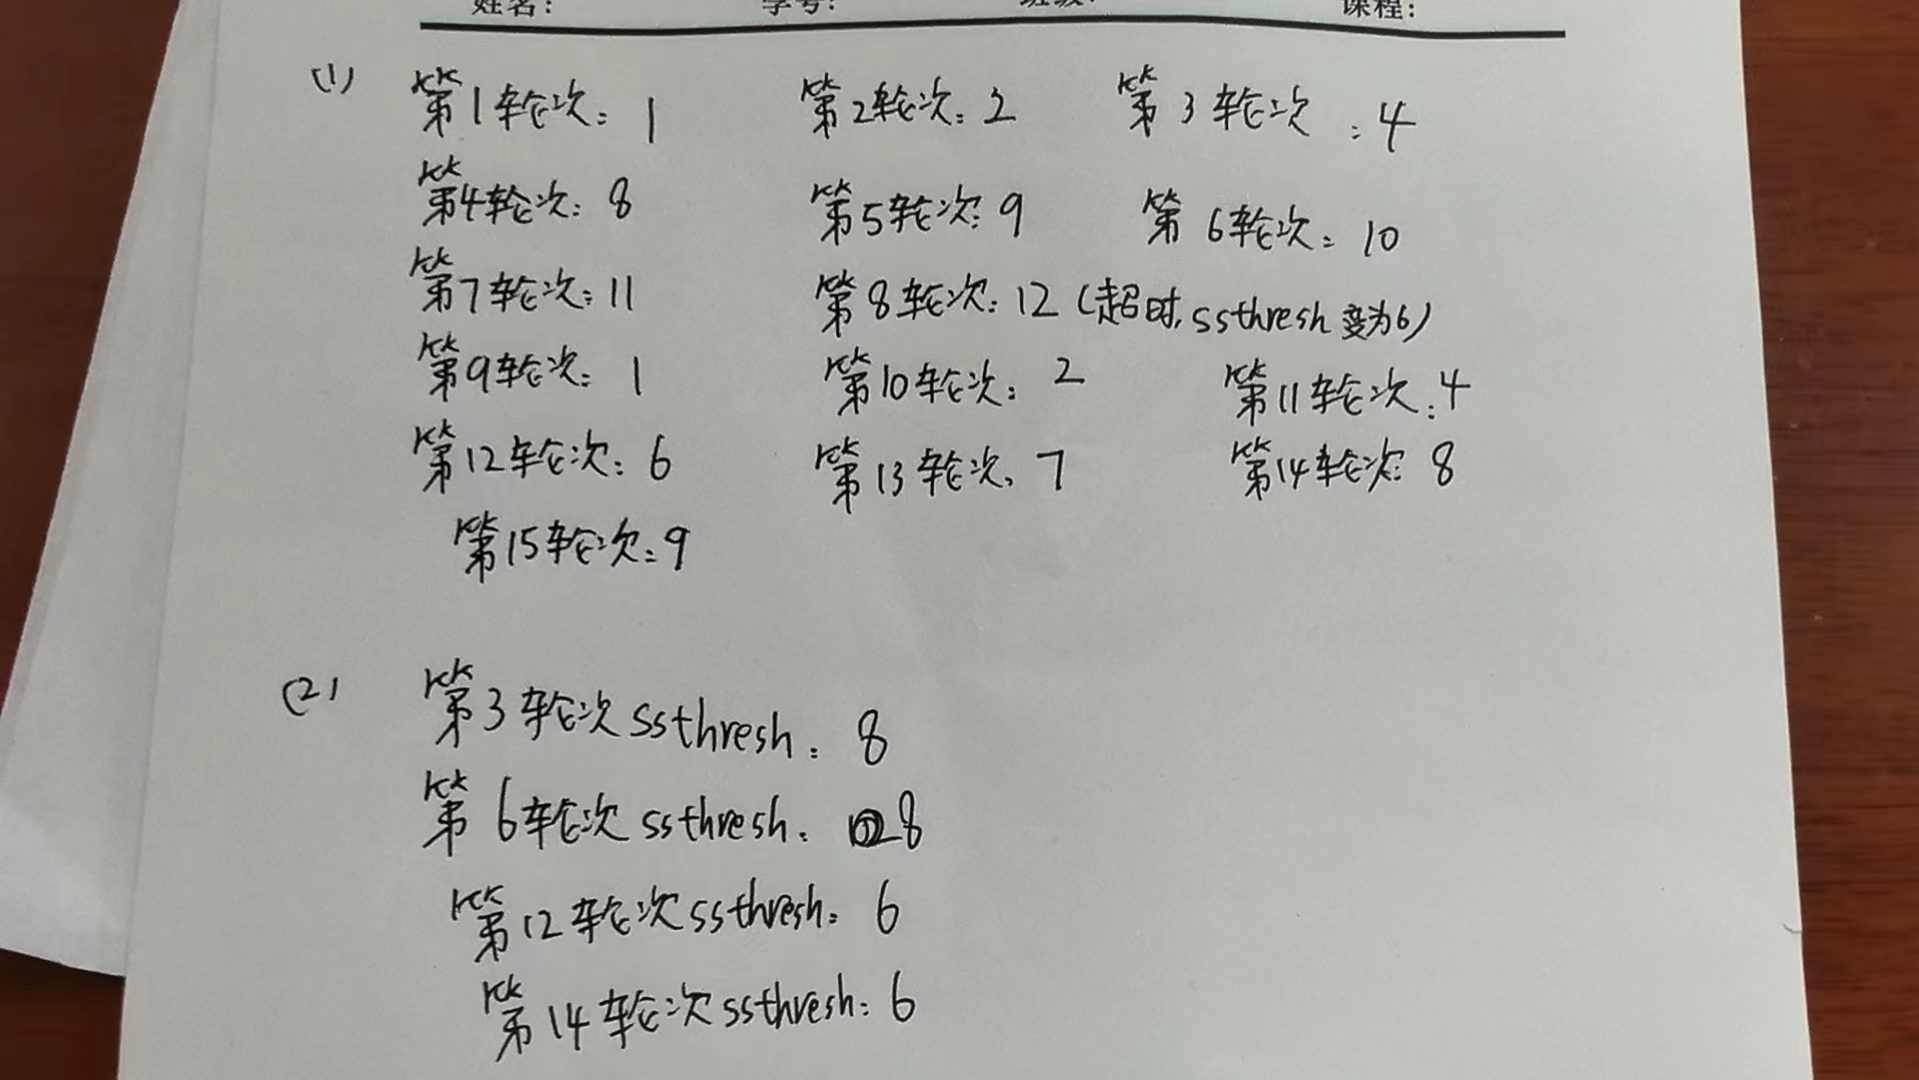 姓名: 学号: 班级: 课程:
(1) 第1轮次: 1 第2轮次: 2 第3轮次: 4
第4轮次: 8 第5轮次: 9 第6轮次: 10
第7轮次: 11 第8轮次: 12 (超时, ssthresh 变为6)
第9轮次: 1 第10轮次: 2 第11轮次: 4
第12轮次: 6 第13轮次: 7 第14轮次: 8
第15轮次: 9
(2) 第3轮次 ssthresh: 8
第6轮次 ssthresh: 8
第12轮次 ssthresh: 6
第14轮次 ssthresh: 6